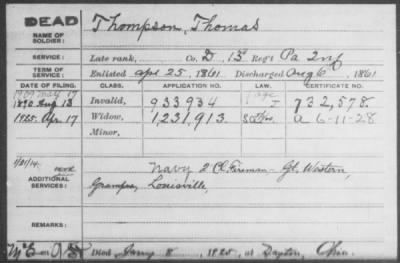 DEAD
NAME OF SOLDIER:
Thompson, Thomas
SERVICE:
Late rank, Co. D 13 Reg't Pa Inf
TERM OF SERVICE:
Enlisted Apr 25, 1861 Discharged Aug 6, 1861
DATE OF FILING. CLASS. APPLICATION NO. LAW. CERTIFICATE NO.
1909 May 17 Age
1890 Aug 13 Invalid, 933934 I 732,578.
1925. Apr 17 Widow, 1,231,913. A 6-11-28
Minor,
ADDITIONAL SERVICES:
Navy 2 Cl. Fireman - Gt. Western,
Grampus, Louisville,
REMARKS:
Died Jany 8, 1925, at Dayton, Ohio.